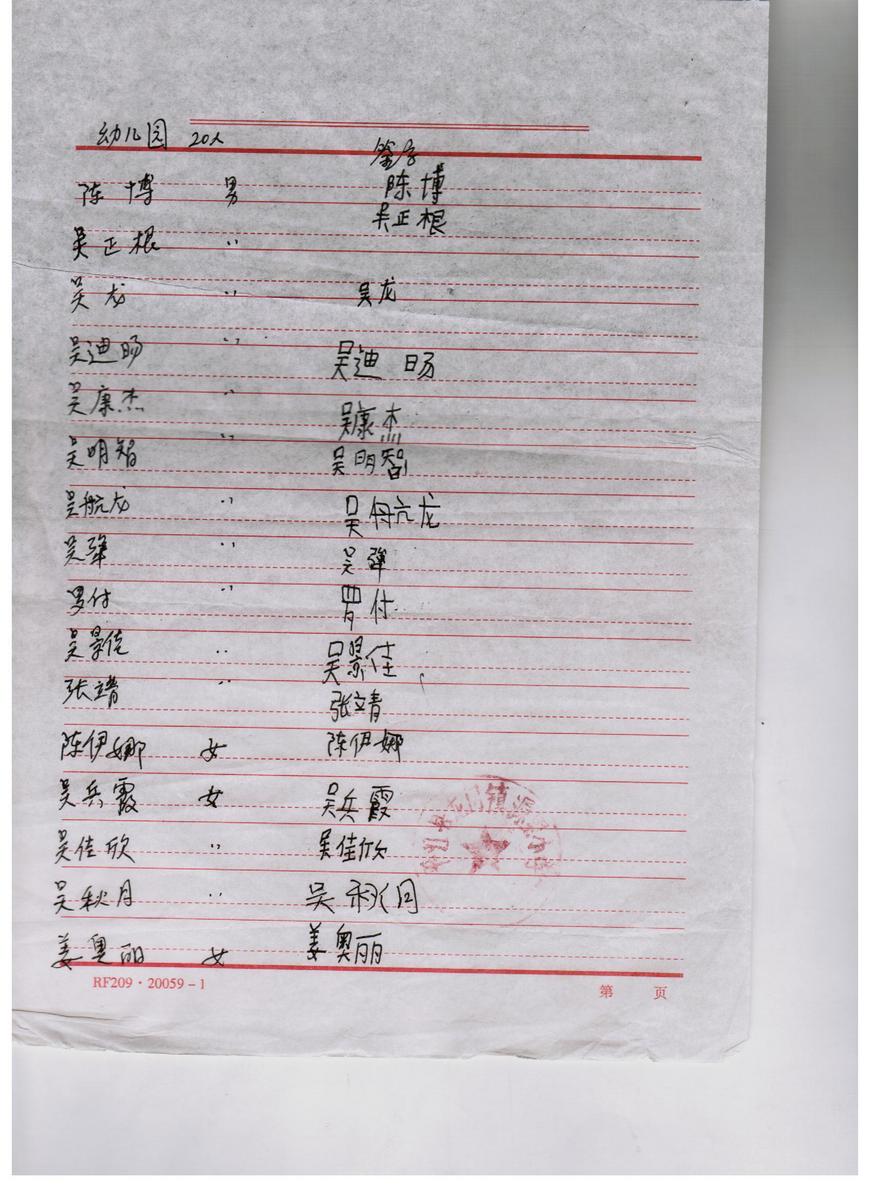 幼儿园 20人
签字
陈博 男 陈博
吴正根 〃 吴正根
吴龙 〃 吴龙
吴迪旸 〃 吴迪旸
吴康杰 〃 吴康杰
吴明智 〃 吴明智
吴航龙 〃 吴航龙
吴 〃 吴
付 〃 付
吴景佳 〃 吴景佳
张靖 〃 张靖
陈伊娜 女 陈伊娜
吴兵霞 女 吴兵霞
吴佳欣 〃 吴佳欣
吴秋月 〃 吴秋月
姜奥丽 女 姜奥丽
RF209·20059-1 第 页